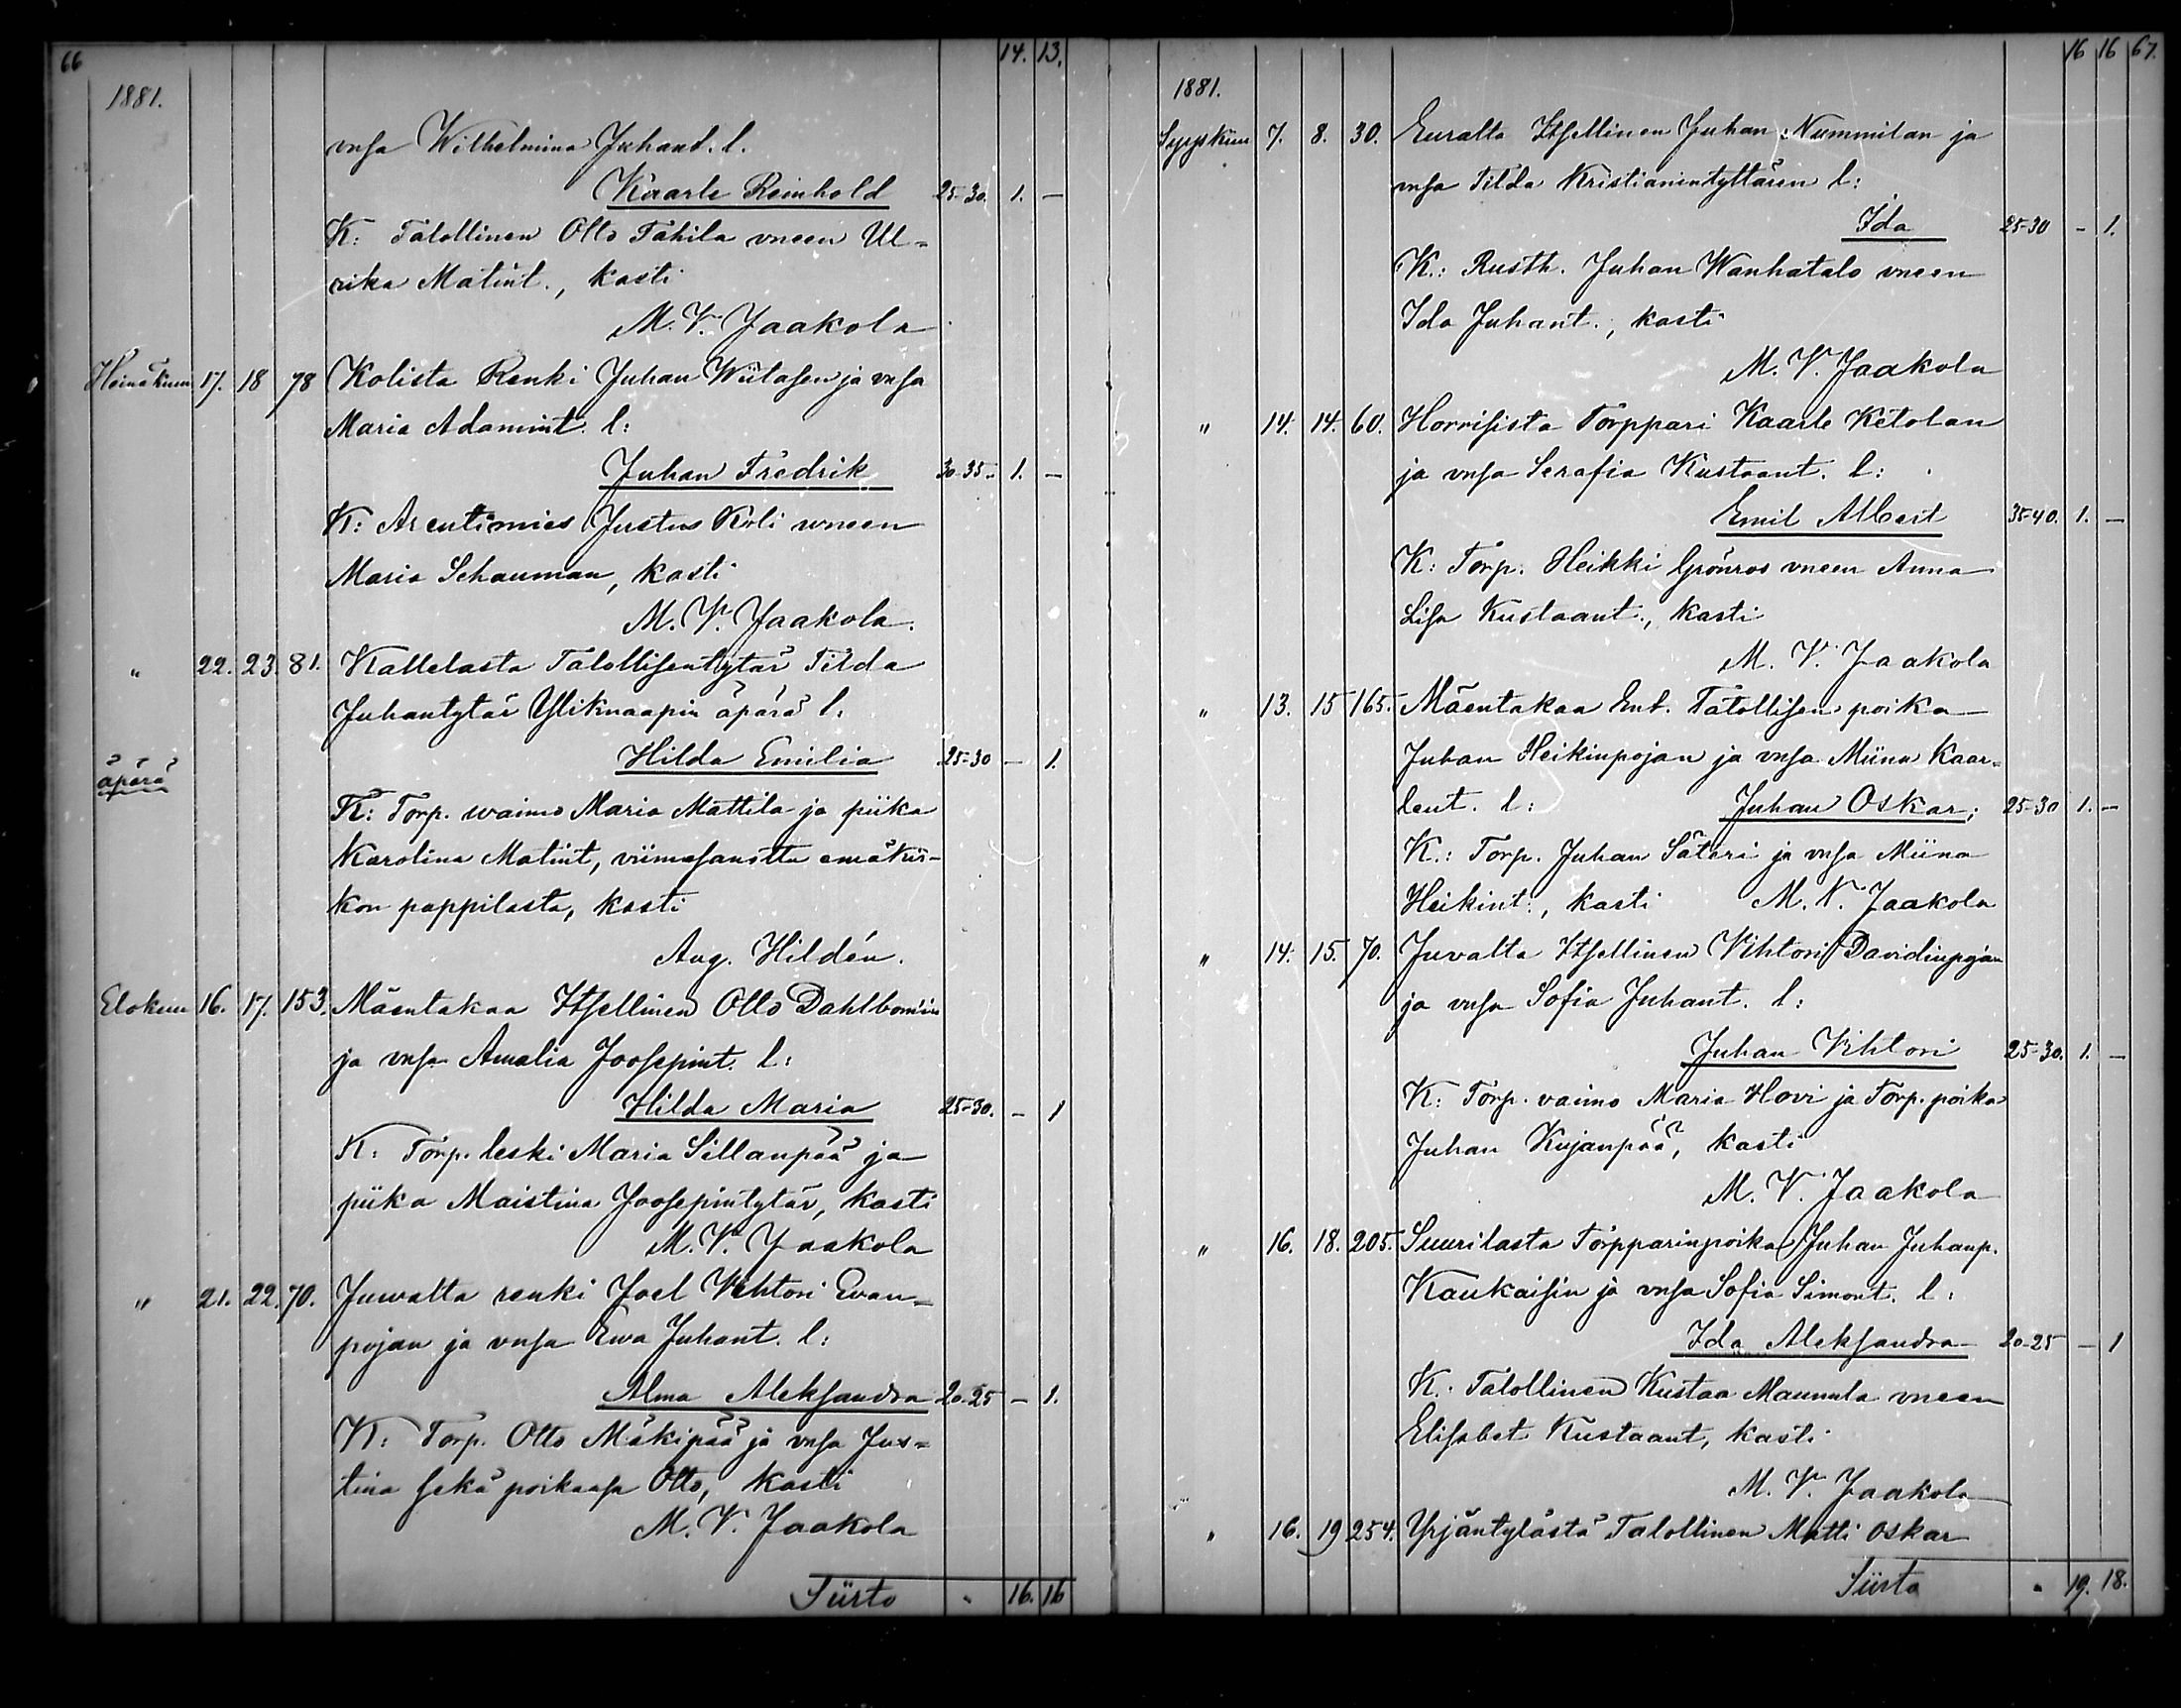 66 14. 13.
1881.
vnsa Wilhelmina Juhant. l.
Kaarle Reinhold 25-30. 1. —
K: Talollinen Otto Tahila vneen Ul=
rika Matint., kasti
M. V. Jaakola
Heinäkuu 17. 18 78 Kolista Renki Juhan Wiitasen ja vnsa
Maria Adamint. l:
Juhan Fredrik 30-35. 1. —
K: Arentimies Justus Koli wneen
Maria Schauman, kasti
M. V. Jaakola.
" 22. 23. 81. Kallelasta Talollisentytär Tilda
Juhantytär Yliknaapin äpärä l:
Hilda Emilia 25-30 — 1.
äpärä
K: Torp. waimo Maria Mattila ja piika
Karolina Matint, viimesanottu emäkir-
kon pappilasta, kasti
Aug. Hildén.
Elokuu 16. 17. 153. Mäentakaa Itsellinen Otto Dahlbomin
ja vnsa Amalia Joosepint. l:
Hilda Maria 25-30. — 1
K: Torp. leski Maria Sillanpää ja
piika Maistina Joosepintytär, kasti
M. V. Jaakola
" 21. 22. 70. Juwalta renki Joel Vihtori Evan=
pojan ja vnsa Ewa Juhant. l:
Alma Aleksandra 20-25 — 1.
K: Torp. Otto Mäkipää ja vnsa Jus=
tina sekä poikansa Otto, kasti
M. V. Jaakola
Siirto " 16. 16
16 16 67.
1881.
Syyskuu 7. 8. 30. Euralta Itsellinen Juhan Nummilan ja
vnsa Tilda Kristianintyttären l:
Ida 25-30 — 1.
K.: Rusth. Juhan Wanhatalo vneen
Ida Juhant., kasti
M. V. Jaakola
" 14. 14. 60. Horrisista Torppari Kaarle Ketolan
ja vnsa Serafia Kustaant. l:
Emil Albert 35-40. 1. —
K: Torp. Heikki Grönros vneen Anna
Lisa Kustaant., kasti
M. V. Jaakola
" 13. 15 165. Mäentakaa Ent. Talollisen poika
Juhan Heikinpojan ja vnsa Miina Kaar=
lent. l: Juhan Oskar; 25-30 1. —
K.: Torp. Juhan Säteri ja vnsa Miina
Heikint., kasti M. V. Jaakola
" 14. 15. 70. Juvalta Itsellinen Vihtori Davidinpojan
ja vnsa Sofia Juhant. l:
Juhan Vihtori 25-30. 1. —
K: Torp. vaimo Maria Hovi ja Torp. poika
Juhan Kujanpää, kasti
M. V. Jaakola
" 16. 18. 205. Suurilasta Torpparinpoika Juhan Juhanp.
Kaukaisin ja vnsa Sofia Simont. l:
Ida Aleksandra 20-25 — 1
K. Talollinen Kustaa Maunula vneen
Elisabet Kustaant, kasti
M. V. Jaakola
" 16. 19 254. Yrjäntylästä Talollinen Matti Oskar
Siirto " 19. 18.